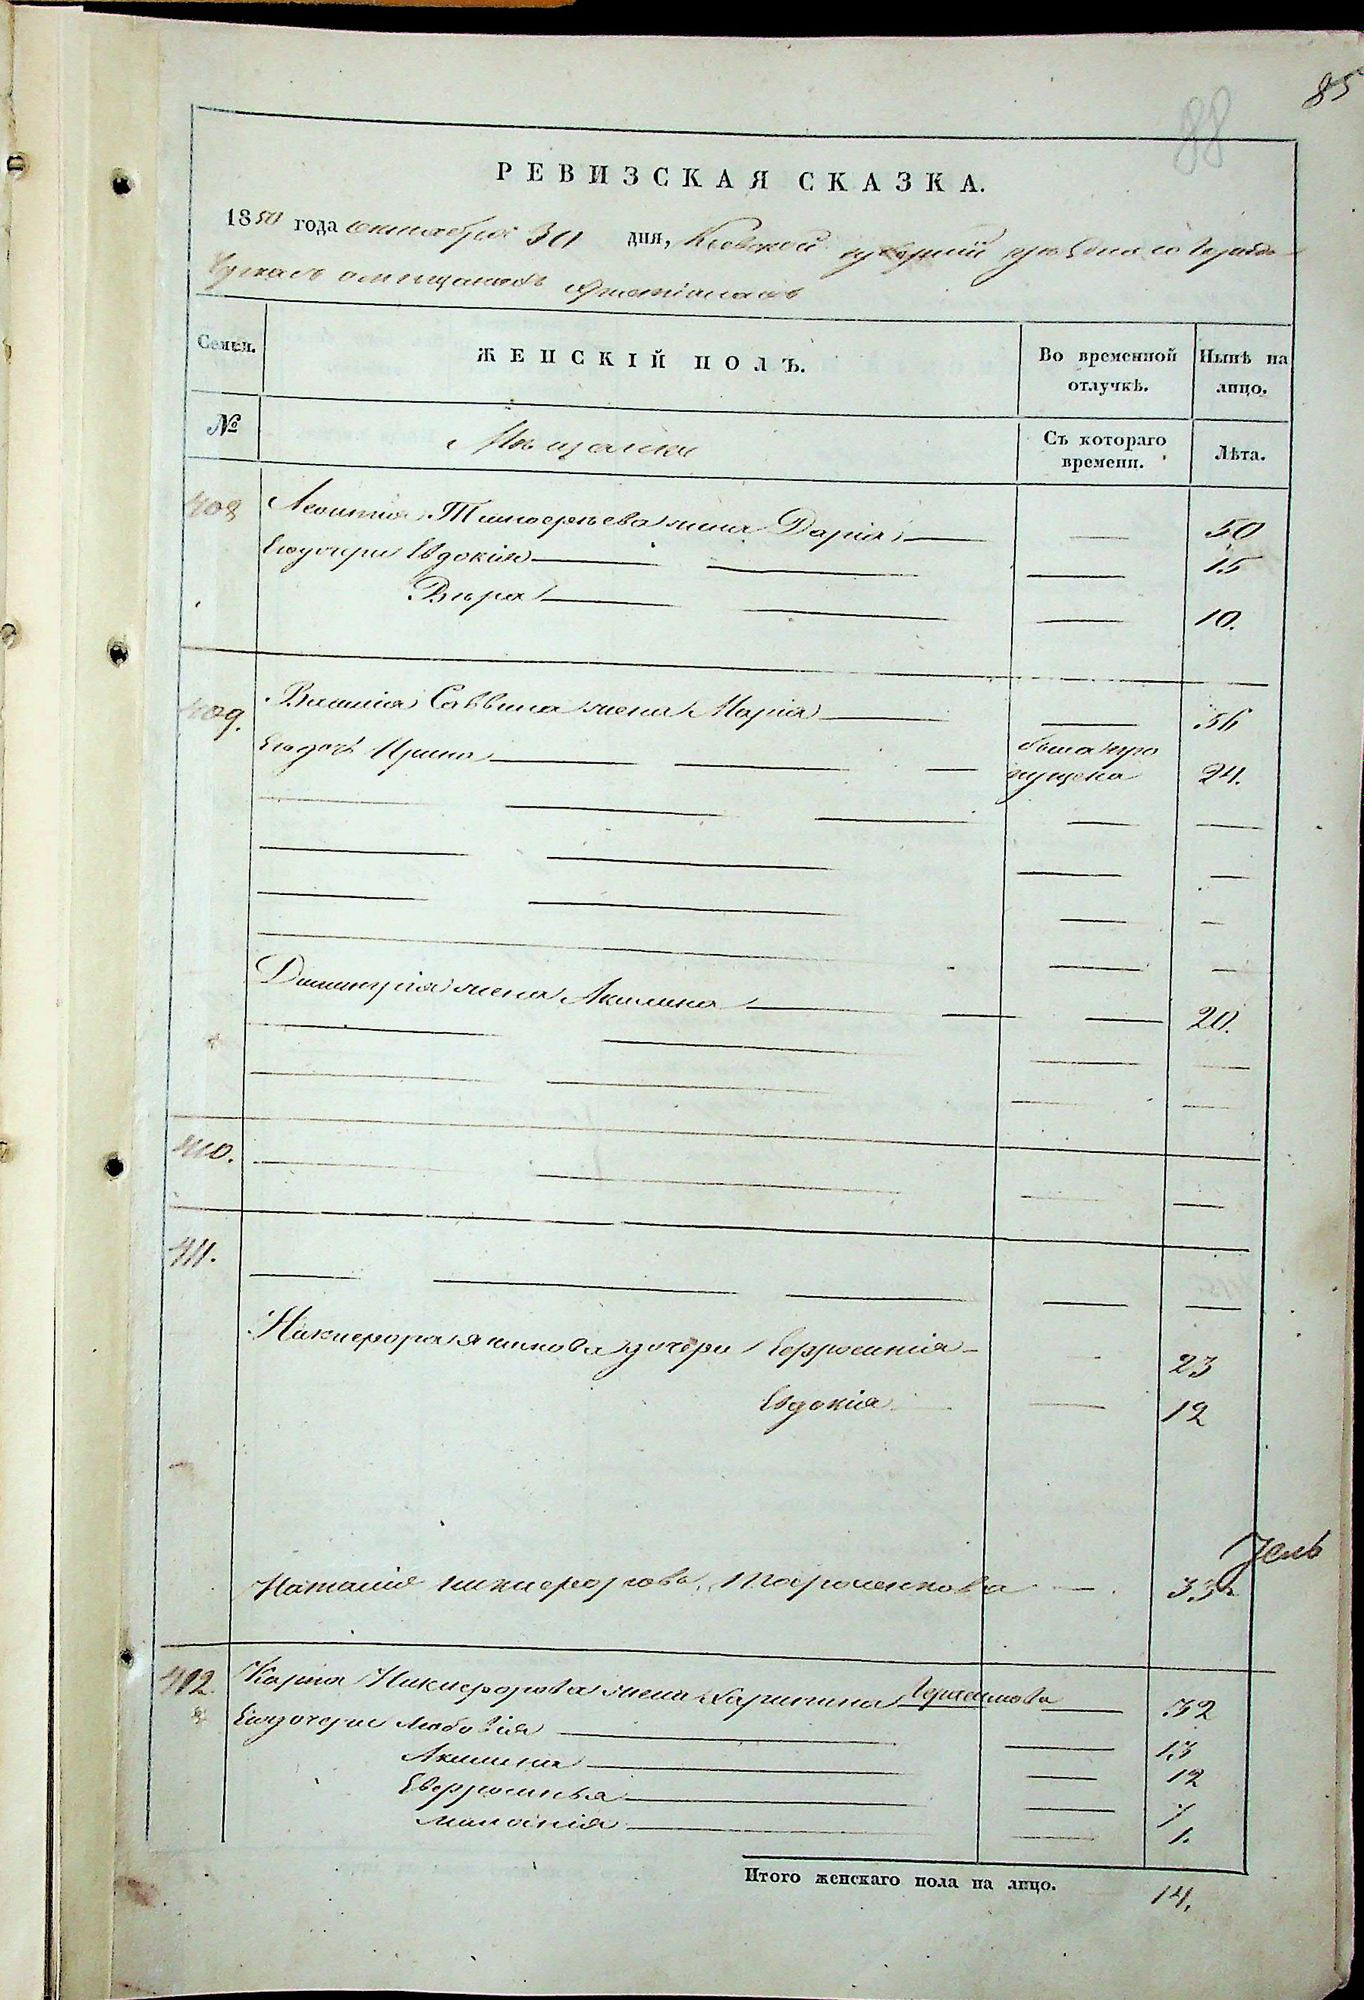 85
88
РЕВИЗСКАЯ СКАЗКА.
1850 года октября 30 дня, Киевской губернии уездного города
о мещанахъ христіанахъ
Семьи. ЖЕНСКІЙ ПОЛЪ. Во временной отлучкѣ. Нынѣ на лицо.
№ Мѣщанки Съ котораго времени. Лѣта.
408 Леонтія Тимофеева жена Дарія — — 50
Его дочери Евдокія — — 15
Вѣра — — 10.
409. Василія Саввина жена Марія — — 56
Его дочь Ирина — была пропущена 24.
Димитрія жена Акилина — — 20.
410. — — —
411. — — —
Никифора дочери Ефросинія — — 23
Евдокія — — 12
Наталія Никифорова — 33
412. Карпа Никифорова жена Харитина Герасимова — 32
Его дочери Любовія — — 13
Акилина — — 12
Евфросинья — — 7
Меланія — — 1.
Итого женскаго пола на лицо. 14.